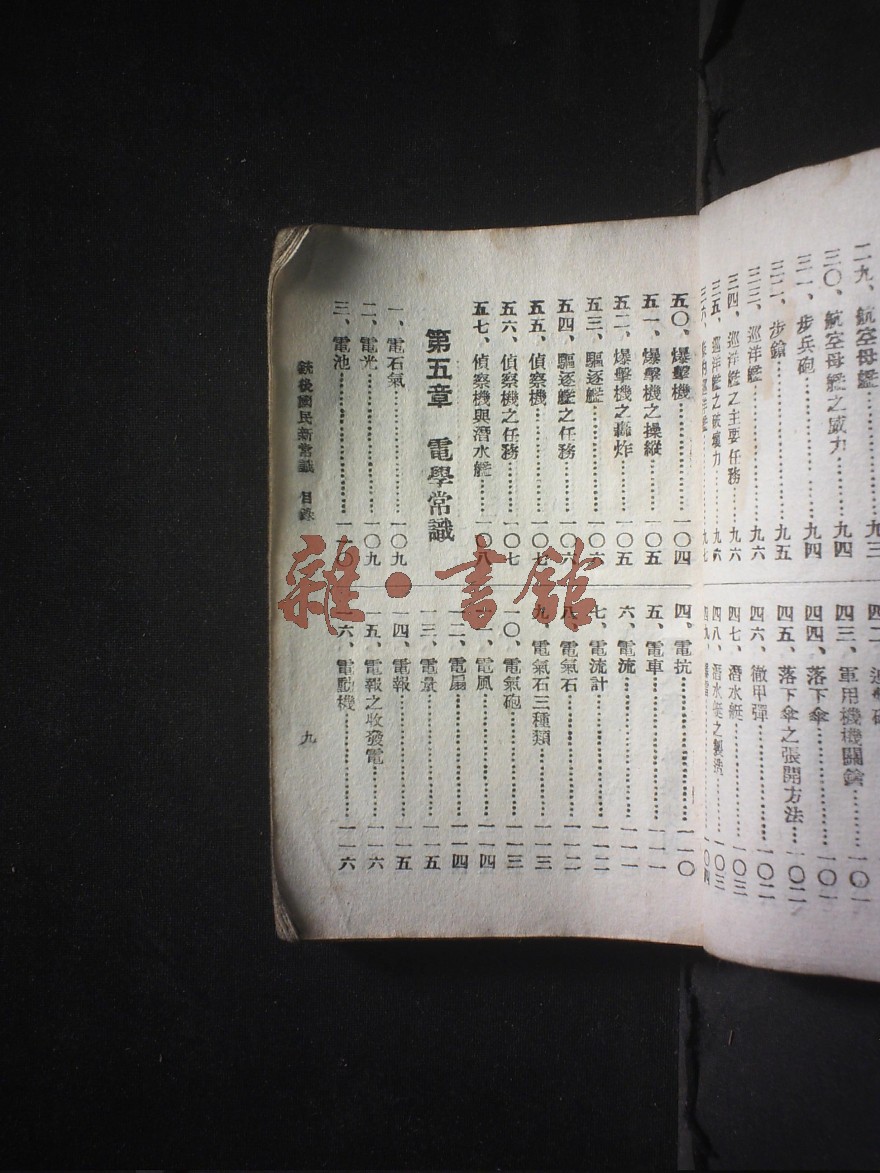 二九、航空母艦……九三
三〇、航空母艦之威力……九四
三一、步兵砲……九四
三二、步鎗……九五
三三、巡洋艦……九六
三四、巡洋艦之主要任務……九六
三五、巡洋艦之破壞力……九六
四三、軍用機機關鎗……一〇一
四四、落下傘……一〇一
四五、落下傘之張開方法……一〇二
四六、徹甲彈……一〇二
四七、潛水艇……一〇三
四八、潛水艇之製造……一〇三
五〇、爆擊機……一〇四
五一、爆擊機之操縱……一〇五
五二、爆擊機之轟炸……一〇五
五三、驅逐艦……一〇六
五四、驅逐艦之任務……一〇六
五五、偵察機……一〇七
五六、偵察機之任務……一〇七
五七、偵察機與潛水艦……一〇八
第五章　電學常識
一、電石氣……一〇九
二、電光……一〇九
三、電池……一一〇
四、電抗……一一〇
五、電車……一一一
六、電流……一一一
七、電流計……一一二
八、電氣石……一一二
九、電氣石三種類……一一三
一〇、電氣砲……一一三
一一、電風……一一四
一二、電扇……一一四
一三、電量……一一五
一四、電報……一一五
一五、電報之收發電……一一六
一六、電動機……一一六
銃後國民新常識　目錄
九
雜·書館